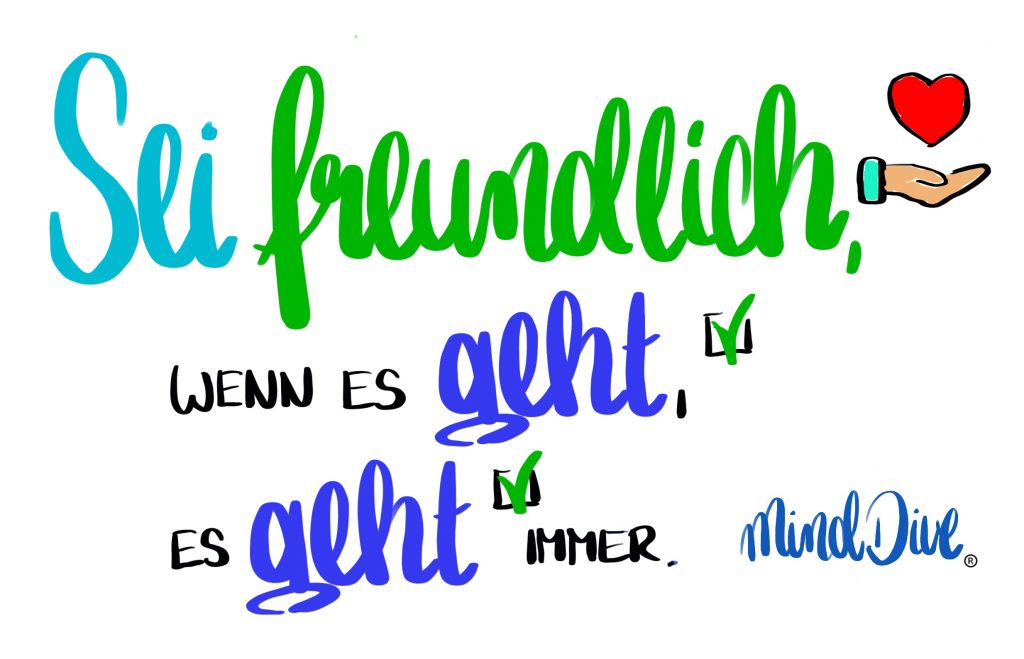 Sei freundlich,
WENN ES geht,
ES geht IMMER.
mindDive®